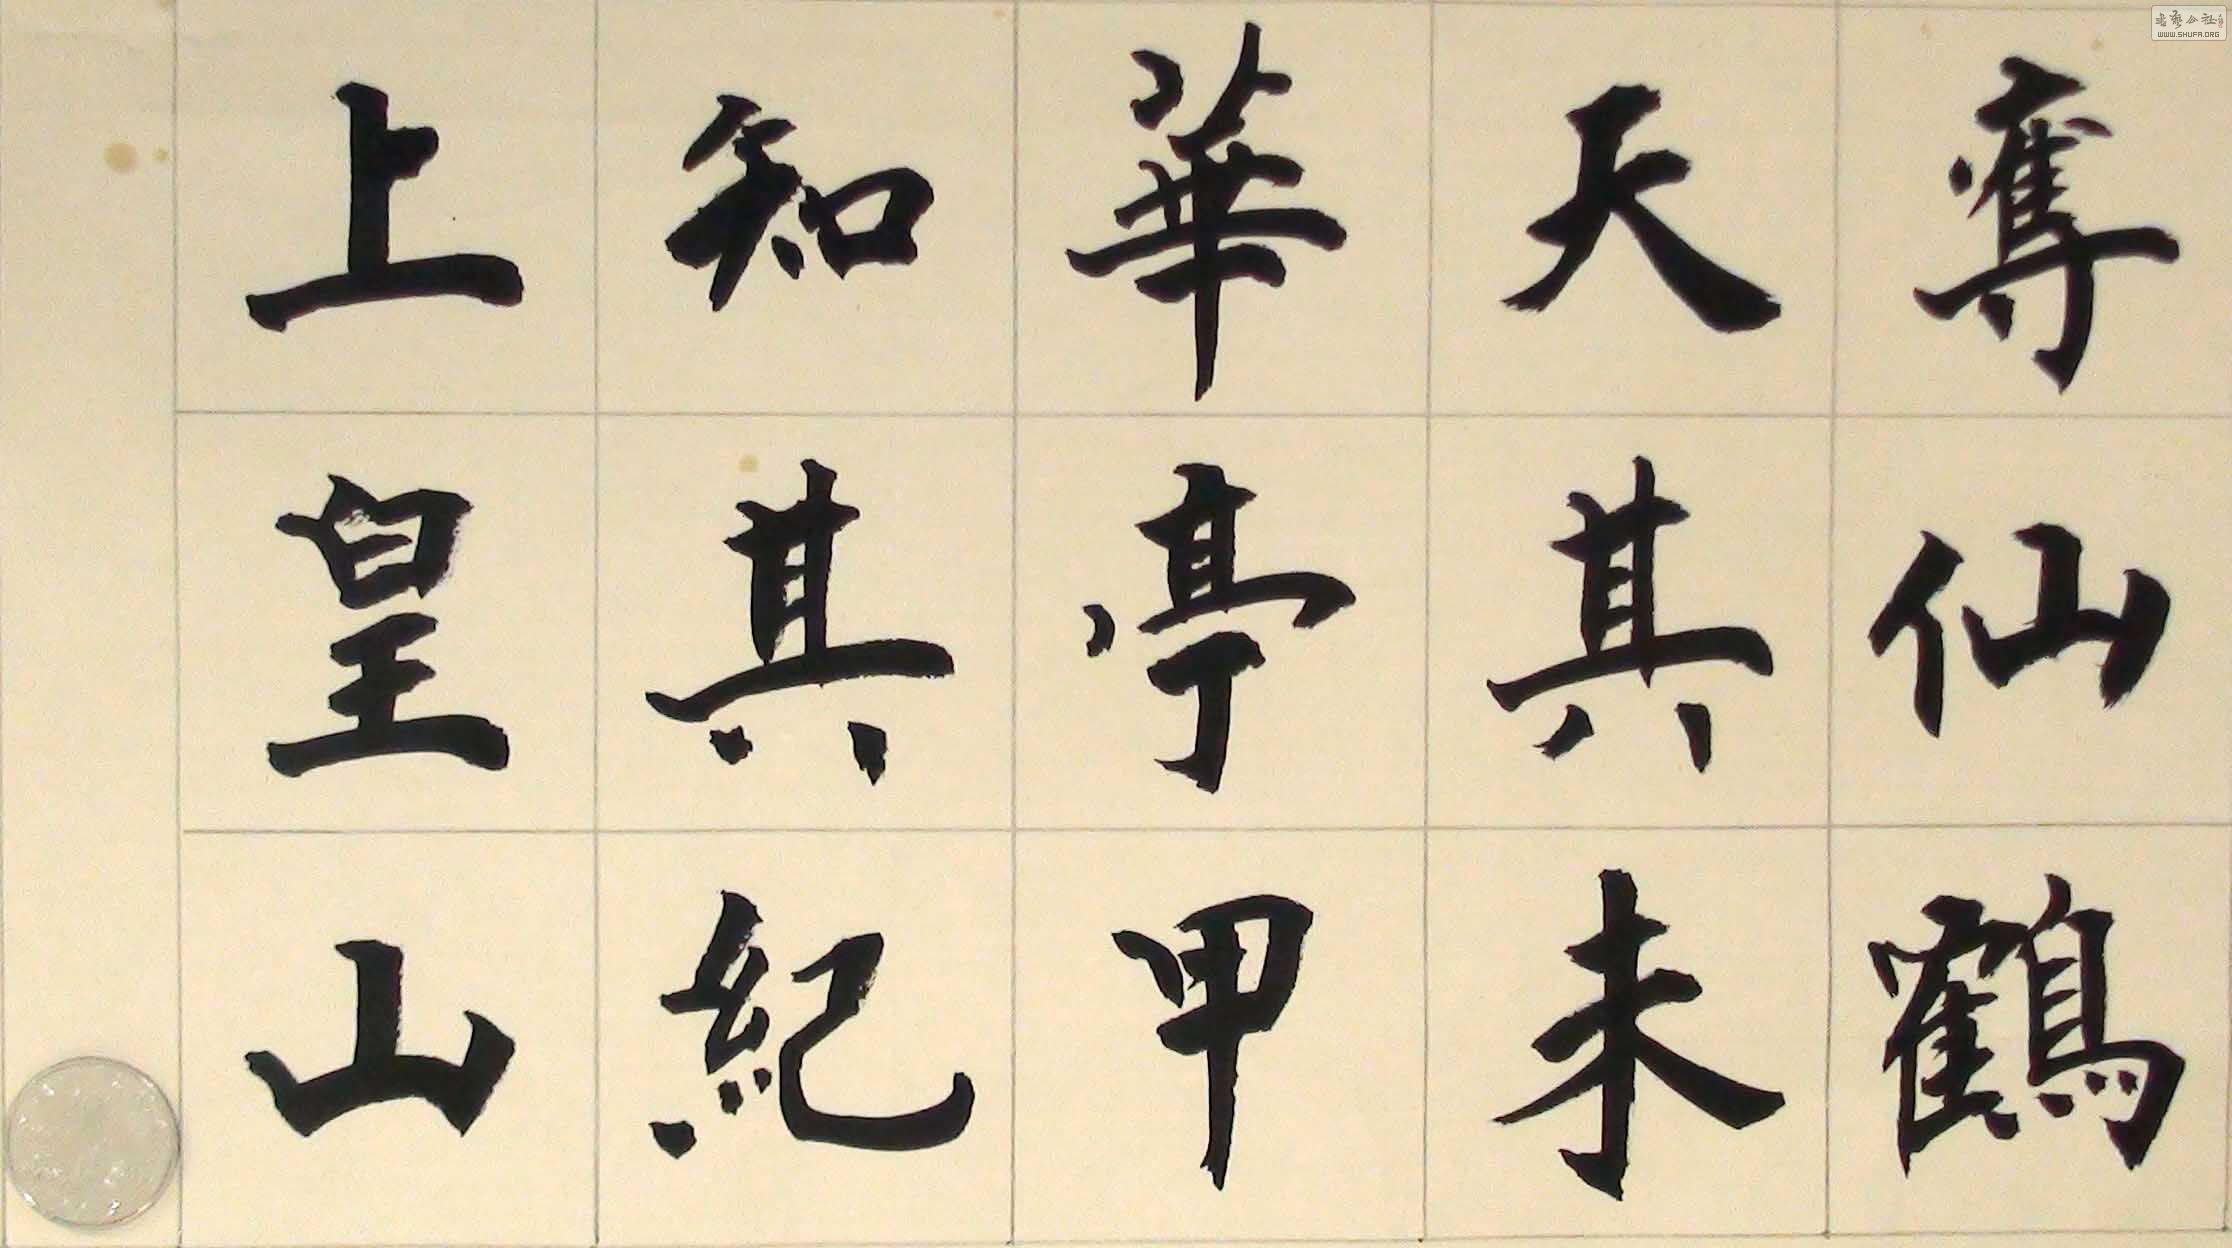 上皇山
知其紀
華亭甲
天其未
奪仙鶴
书艺公社
WWW.SHUFA.ORG